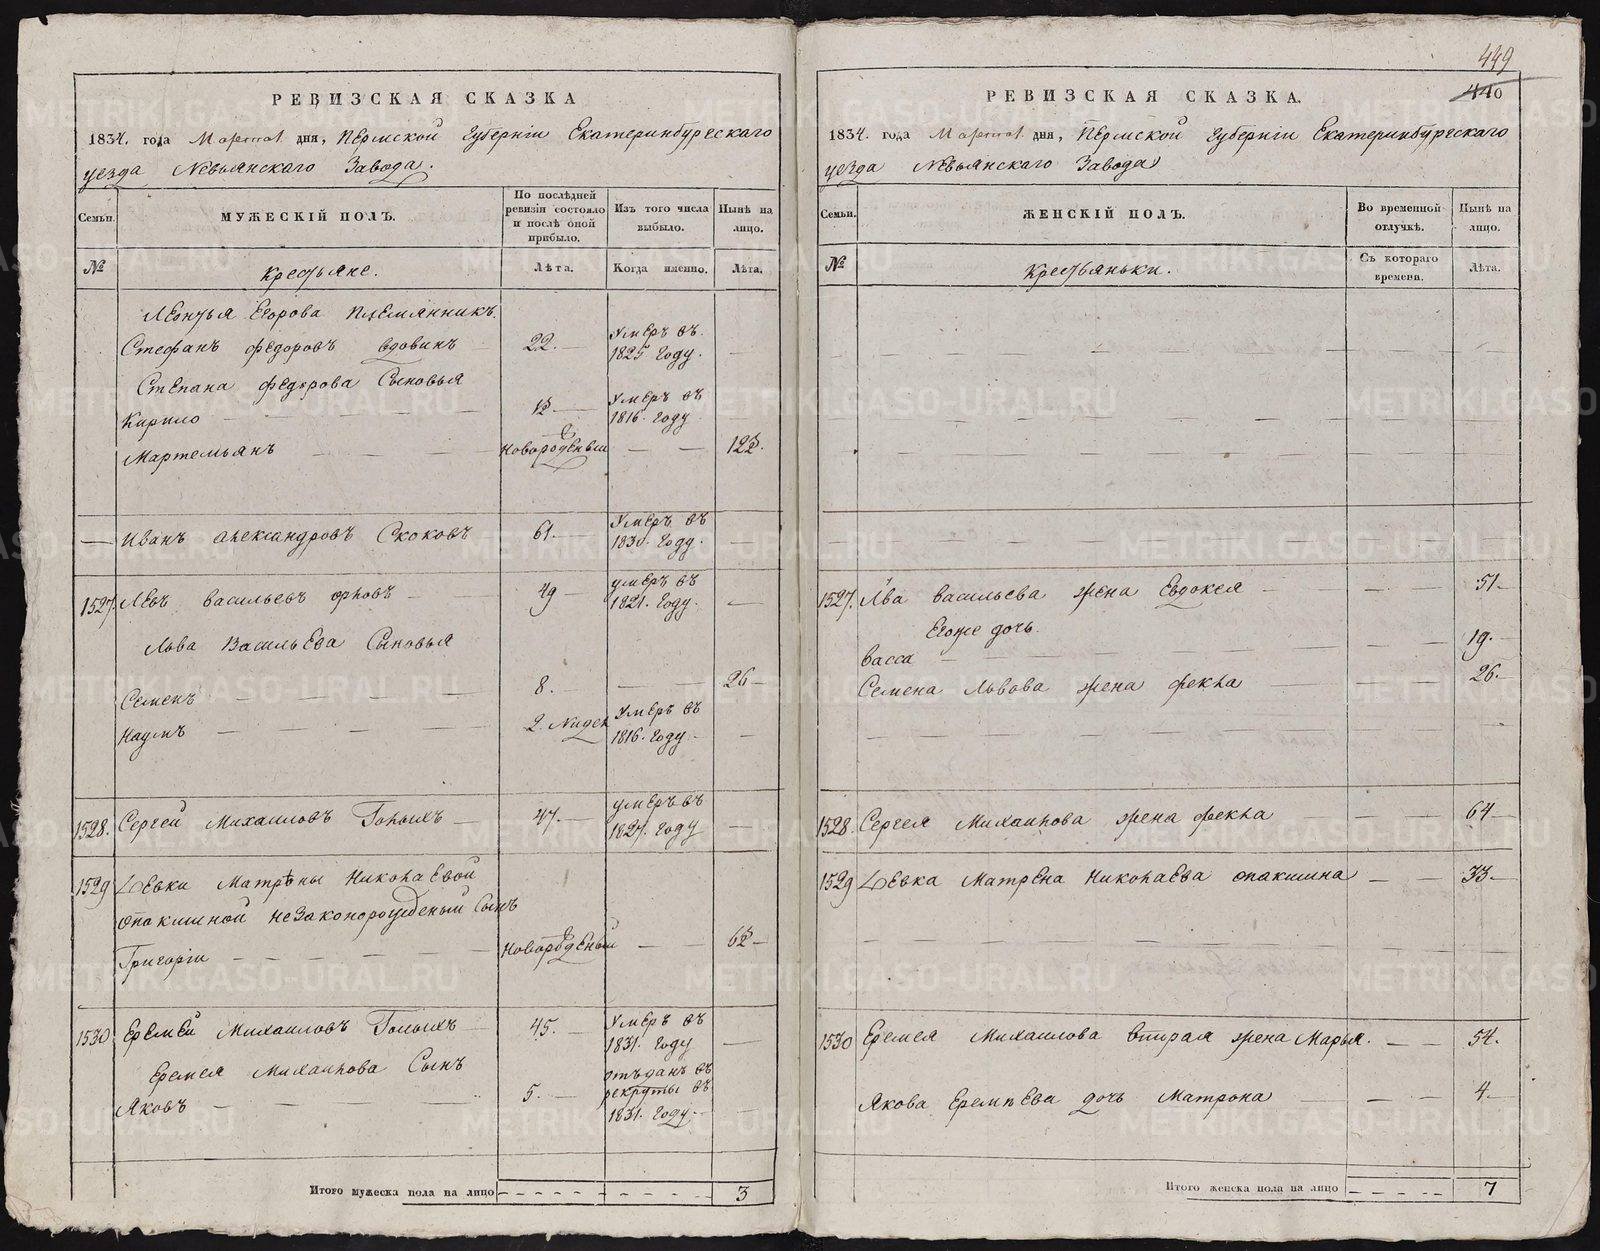 РЕВИЗСКАЯ СКАЗКА
1834. года дня, Пермской Губернiи Екатеринбургскаго
уезда Невьянскаго Завода.
Семьи.
МУЖЕСКIЙ ПОЛЪ.
По послѣдней ревизiи состояло и послѣ оной прибыло.
Изъ того числа выбыло.
Нынѣ на лицо.
№
Крестьяне.
Лѣта.
Когда именно.
Лѣта.
Леонтья Егорова племянникъ
Стефанъ Федоровъ Вдовинъ 22. Умеръ въ 1825 году.
Степана Федорова Сыновья
Кирило Умеръ въ 1816. году
Мартемьянъ Новорожденый
Иванъ Александровъ Скоковъ 61. Умеръ въ году.
1527. Левъ Васильевъ Орловъ 49 умеръ въ 1821. году.
Льва Васильева Сыновья
Семенъ 8. 26
Наумъ 2. недел Умеръ въ 1816. году
1528. Сергей Михаиловъ Голыхъ 47. умеръ въ 1827. году
1529 Девки Матрены Николаевой
опакишной незаконорожденый Сынъ
Григорiи Новорожденый
1530 Еремей Михаиловъ Голыхъ 45. Умеръ въ 1831. году
Еремея Михаилова Сынъ
Яковъ 5. отъданъ въ рекруты въ 1831. году
Итого мужеска пола на лицо 3
449
440
РЕВИЗСКАЯ СКАЗКА.
1834. года дня, Пермской Губернiи Екатеринбургскаго
уезда Невьянскаго Завода
Семьи.
ЖЕНСКIЙ ПОЛЪ.
Во временной отлучкѣ.
Нынѣ на лицо.
№
Крестьяньки.
Съ котораго времени.
Лѣта.
1527. Льва Васильева жена Евдокея 51
Егоже дочь
Васса 19.
Семена Львова жена Фекла 26.
1528. Сергея Михаилова жена Фекла 64
1529 Девка Матрена Николаева опакишна 33
1530 Еремея Михаилова вторая жена Марья. 54.
Якова Еремеева дочь Матрона 4
Итого женска пола на лицо 7
METRIKI.GASO-URAL.RU